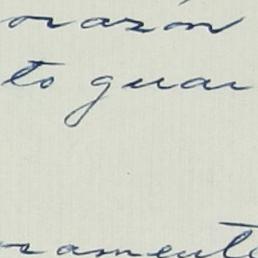 orazón
to guar
ramente